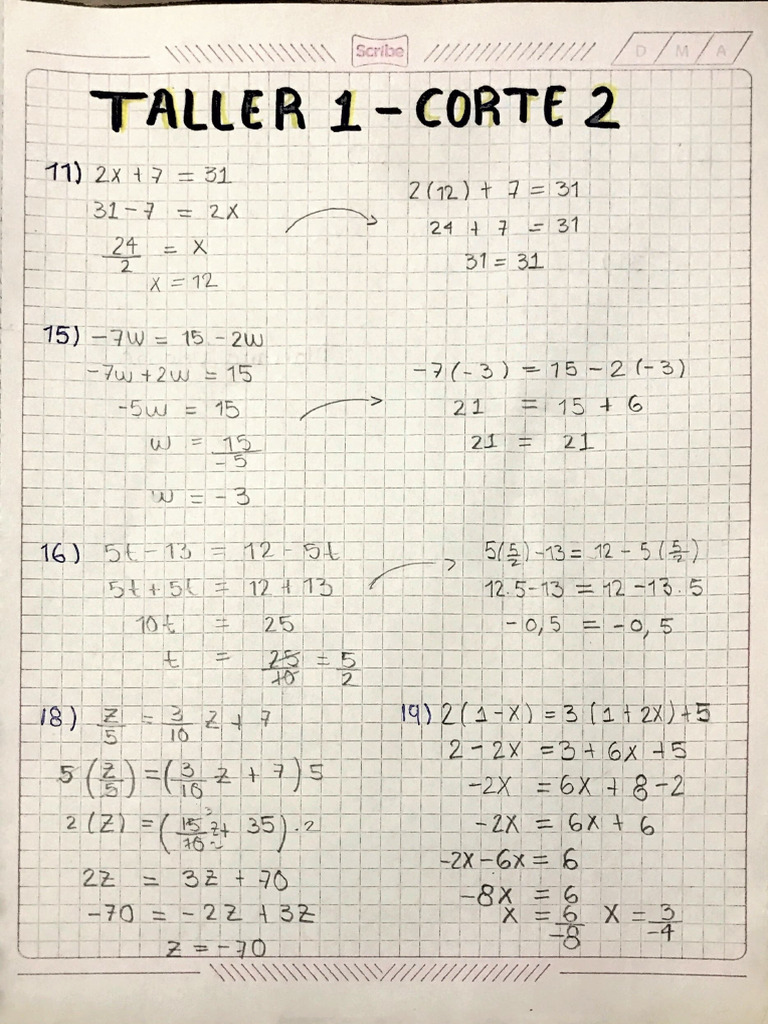 Scribe
D / M / A
TALLER 1 - CORTE 2
11) 2x + 7 = 31
31 - 7 = 2x
24/2 = x
x = 12
2(12) + 7 = 31
24 + 7 = 31
31 = 31
15) -7w = 15 - 2w
-7w + 2w = 15
-5w = 15
w = 15/-5
w = -3
-7(-3) = 15 - 2(-3)
21 = 15 + 6
21 = 21
16) 5t - 13 = 12 - 5t
5t + 5t = 12 + 13
10t = 25
t = 25/10 = 5/2
5(5/2) - 13 = 12 - 5(5/2)
12.5 - 13 = 12 - 13.5
-0,5 = -0,5
18) z/5 = 3/10 z + 7
5(z/5) = (3/10 z + 7)5
2(z) = (15/10 3 z + 35).2
2z = 3z + 70
-70 = -2z + 3z
z = -70
19) 2(1 - x) = 3(1 + 2x) + 5
2 - 2x = 3 + 6x + 5
-2x = 6x + 8 - 2
-2x = 6x + 6
-2x - 6x = 6
-8x = 6
x = 6/-8 x = 3/-4